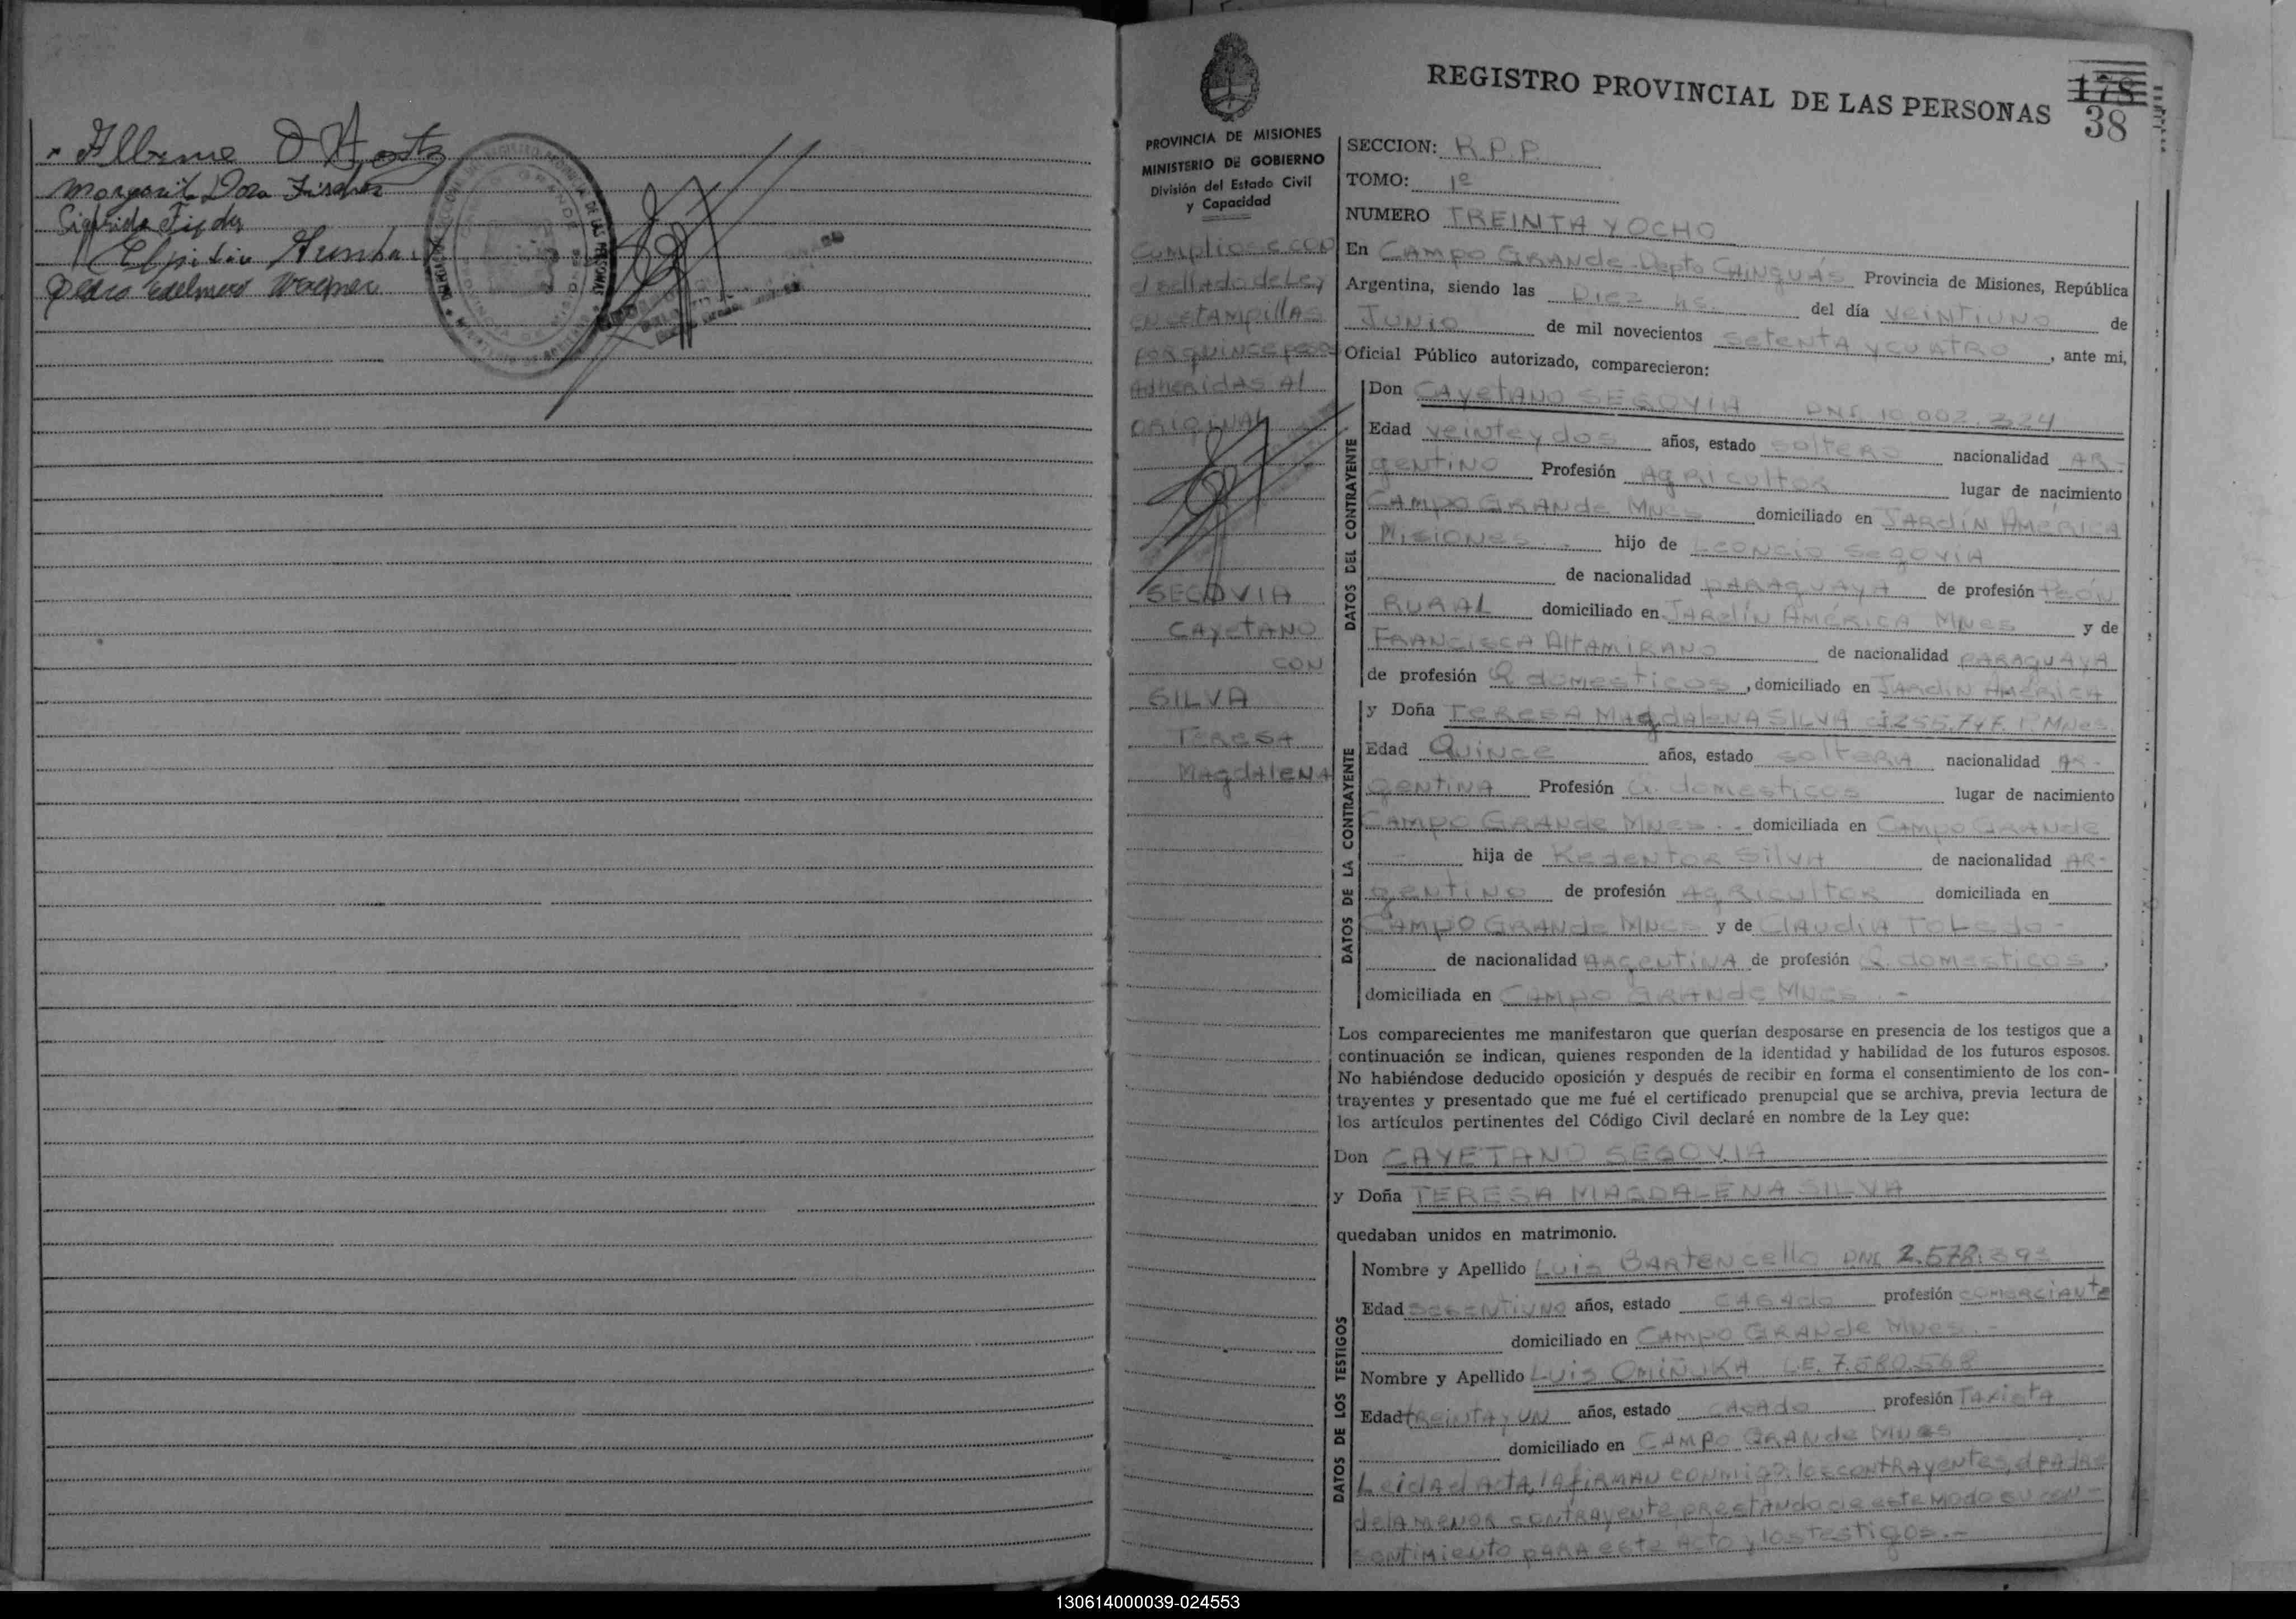 Margarita Dora Fischer
Pedro Edelmiro Wagner
REGISTRO PROVINCIAL DE LAS PERSONAS
178
38
PROVINCIA DE MISIONES
MINISTERIO DE GOBIERNO
División del Estado Civil
y Capacidad
Cumpliose con
el sellado de Ley
en estampillas
por quince pesos
adheridas al
original
SEGOVIA
CAYETANO
CON
SILVA
TERESA
MAGDALENA
SECCION: R.P.P.
TOMO: 1º
NUMERO TREINTA Y OCHO
En CAMPO GRANDE Depto CAINGUÁS Provincia de Misiones, República
Argentina, siendo las Diez hs. del día veintiuno de
Junio de mil novecientos setenta y cuatro, ante mi,
Oficial Público autorizado, comparecieron:
DATOS DEL CONTRAYENTE
Don Cayetano SEGOVIA DNI. 10.002.324
Edad veinte y dos años, estado soltero nacionalidad Ar-
gentino Profesión Agricultor lugar de nacimiento
Campo Grande Mnes domiciliado en Jardín América
Misiones.. hijo de Leoncio Segovia
de nacionalidad paraguaya de profesión Peón
rural domiciliado en Jardín América Mnes y de
Francisca Altamirano de nacionalidad paraguaya
de profesión Q domesticos, domiciliado en Jardín América
DATOS DE LA CONTRAYENTE
y Doña Teresa Magdalena SILVA ci 255.747. P. Mnes
Edad Quince años, estado soltera nacionalidad Ar-
gentina Profesión Q. domesticos lugar de nacimiento
Campo Grande Mnes.. domiciliada en Campo Grande
- hija de Redentor Silva de nacionalidad Ar-
gentino de profesión Agricultor domiciliada en
Campo Grande Mnes y de Claudia Toledo -
de nacionalidad Argentina de profesión Q. domesticos,
domiciliada en Campo Grande Mnes. -
Los comparecientes me manifestaron que querían desposarse en presencia de los testigos que a
continuación se indican, quienes responden de la identidad y habilidad de los futuros esposos.
No habiéndose deducido oposición y después de recibir en forma el consentimiento de los con-
trayentes y presentado que me fué el certificado prenupcial que se archiva, previa lectura de
los artículos pertinentes del Código Civil declaré en nombre de la Ley que:
Don CAYETANO SEGOVIA
y Doña TERESA MAGDALENA SILVA
quedaban unidos en matrimonio.
DATOS DE LOS TESTIGOS
Nombre y Apellido Luis Bartencello DNI 2.578.393
Edad sesentiuno años, estado casado profesión comerciante
domiciliado en Campo Grande Mnes. -
Nombre y Apellido Luis Omiñuka L.E. 7.680.568
Edad treinta y un años, estado casado profesión Taxista
domiciliado en Campo Grande Mnes
Leida el Acta, la firman conmigo: los contrayentes, el padre
de la menor contrayente prestando de este modo su con-
sentimiento para este acto y los testigos.-
130614000039-024553